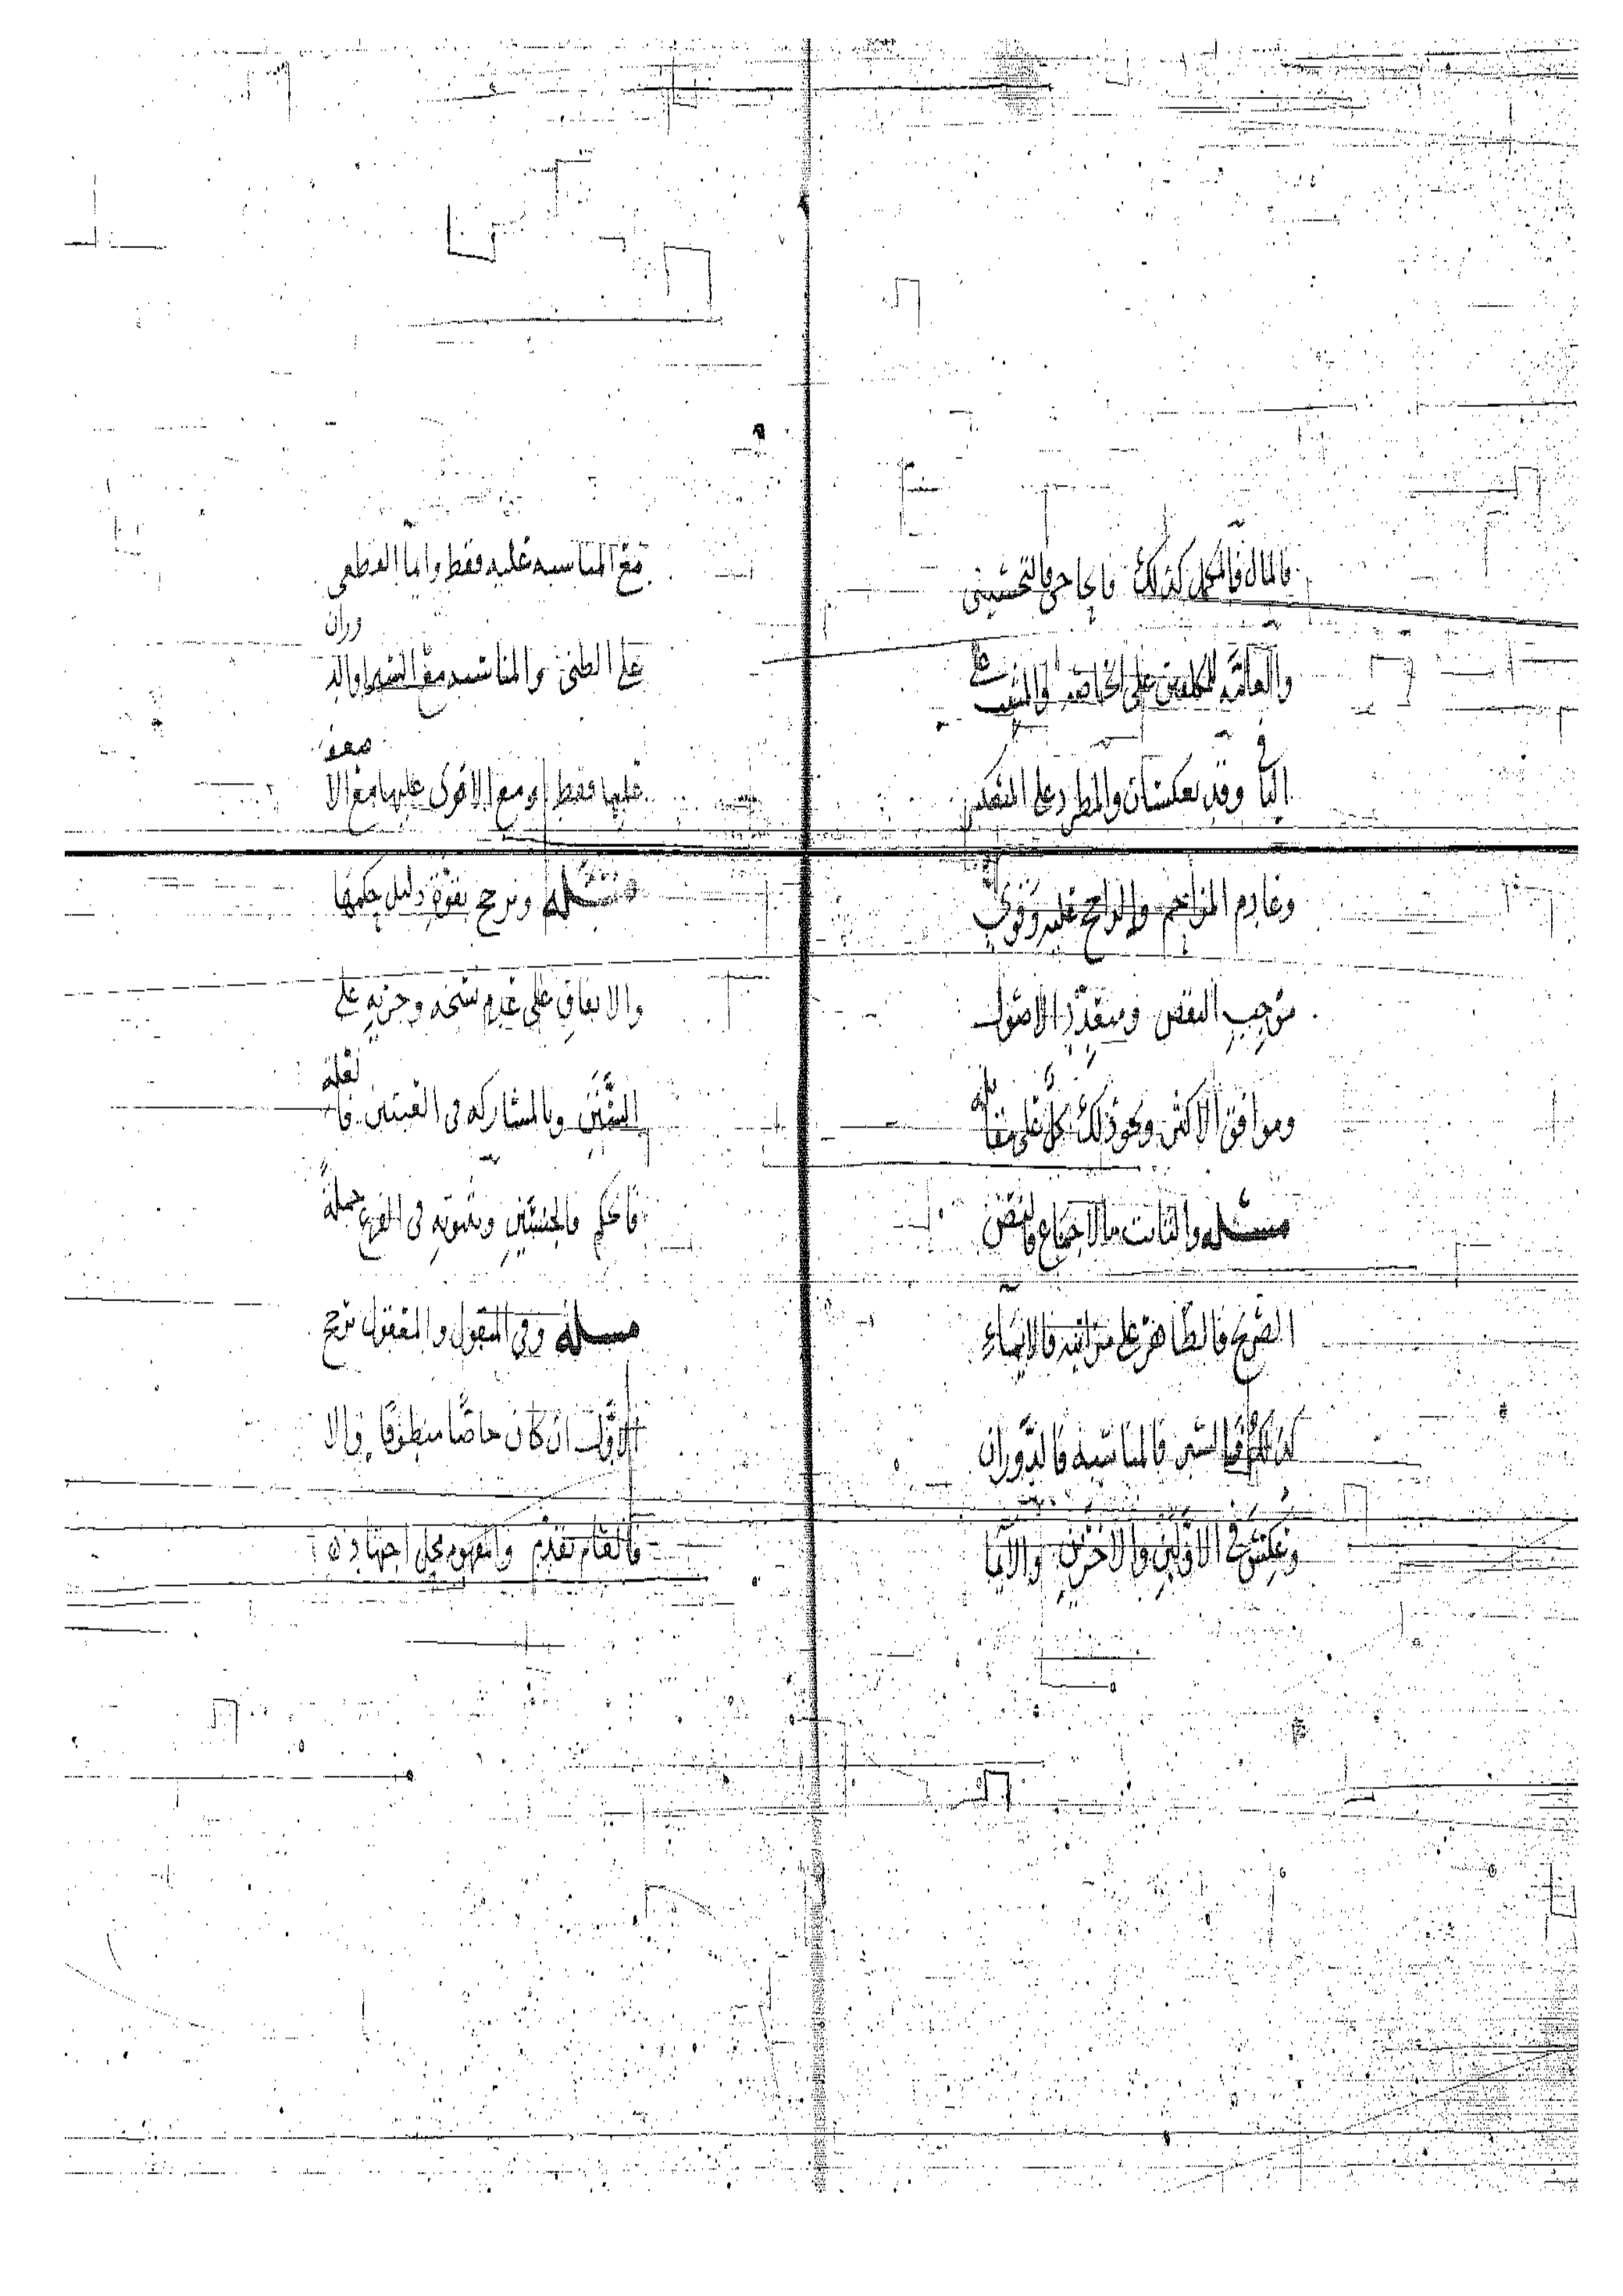 فالمال فالمكمل كذلك فالحاجي فالتحسيني
والعامة للمكلفين على الخاصة والمثبت على
النافي وقد يعكسان والمطرد على المنعكس
وعادم المزاحم والراجح عليه وقوي
موجب النقض ومتعدد الاصول
وموافق الاكثر ونحو ذلك كل على مقابله
مسئله والثابت بالاجماع فالنص
الصريح فالظاهر على مراتبه فالايماء
كذلك فالسبر فالمناسبه فالدوران
وعكس في الاولين والاخرين والايما
مع المناسبه عليه فقط واما القطعي
على الظني والمناسبه مع الشبه او الدوران
عليها فقط او مع الاقوى عليها مع الاضعف
مسئله وترجح بقوة دليل حكمها
والاتفاق على عدم نسخه وجريه على
السنن وبالمشاركه في العينين فالعلة
فالحكم فالجنسين وثبوته في الفرع جملة
مسئله وفي المنقول والمعقول ترجح
الاول ان كان خاصا منطوقا والا
فالعام تقدم والمفهوم محل اجتهاد ه